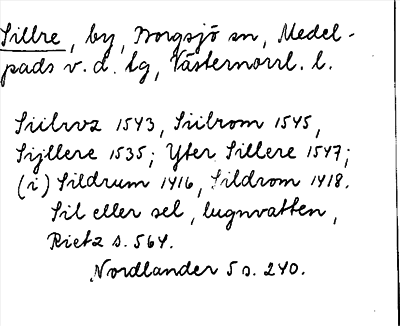 Sillre, by, Borgsjö sn, Medel-
pads v. d. lg, Västernorrl. l.
1543, Siilrom 1545,
Sijllere 1535; Yter Sillere 1547;
(i) Sildrum 1416, Sildrom 1418.
Sil eller sel, lugnvatten,
Rietz s. 564.
Nordlander 5 s. 240.